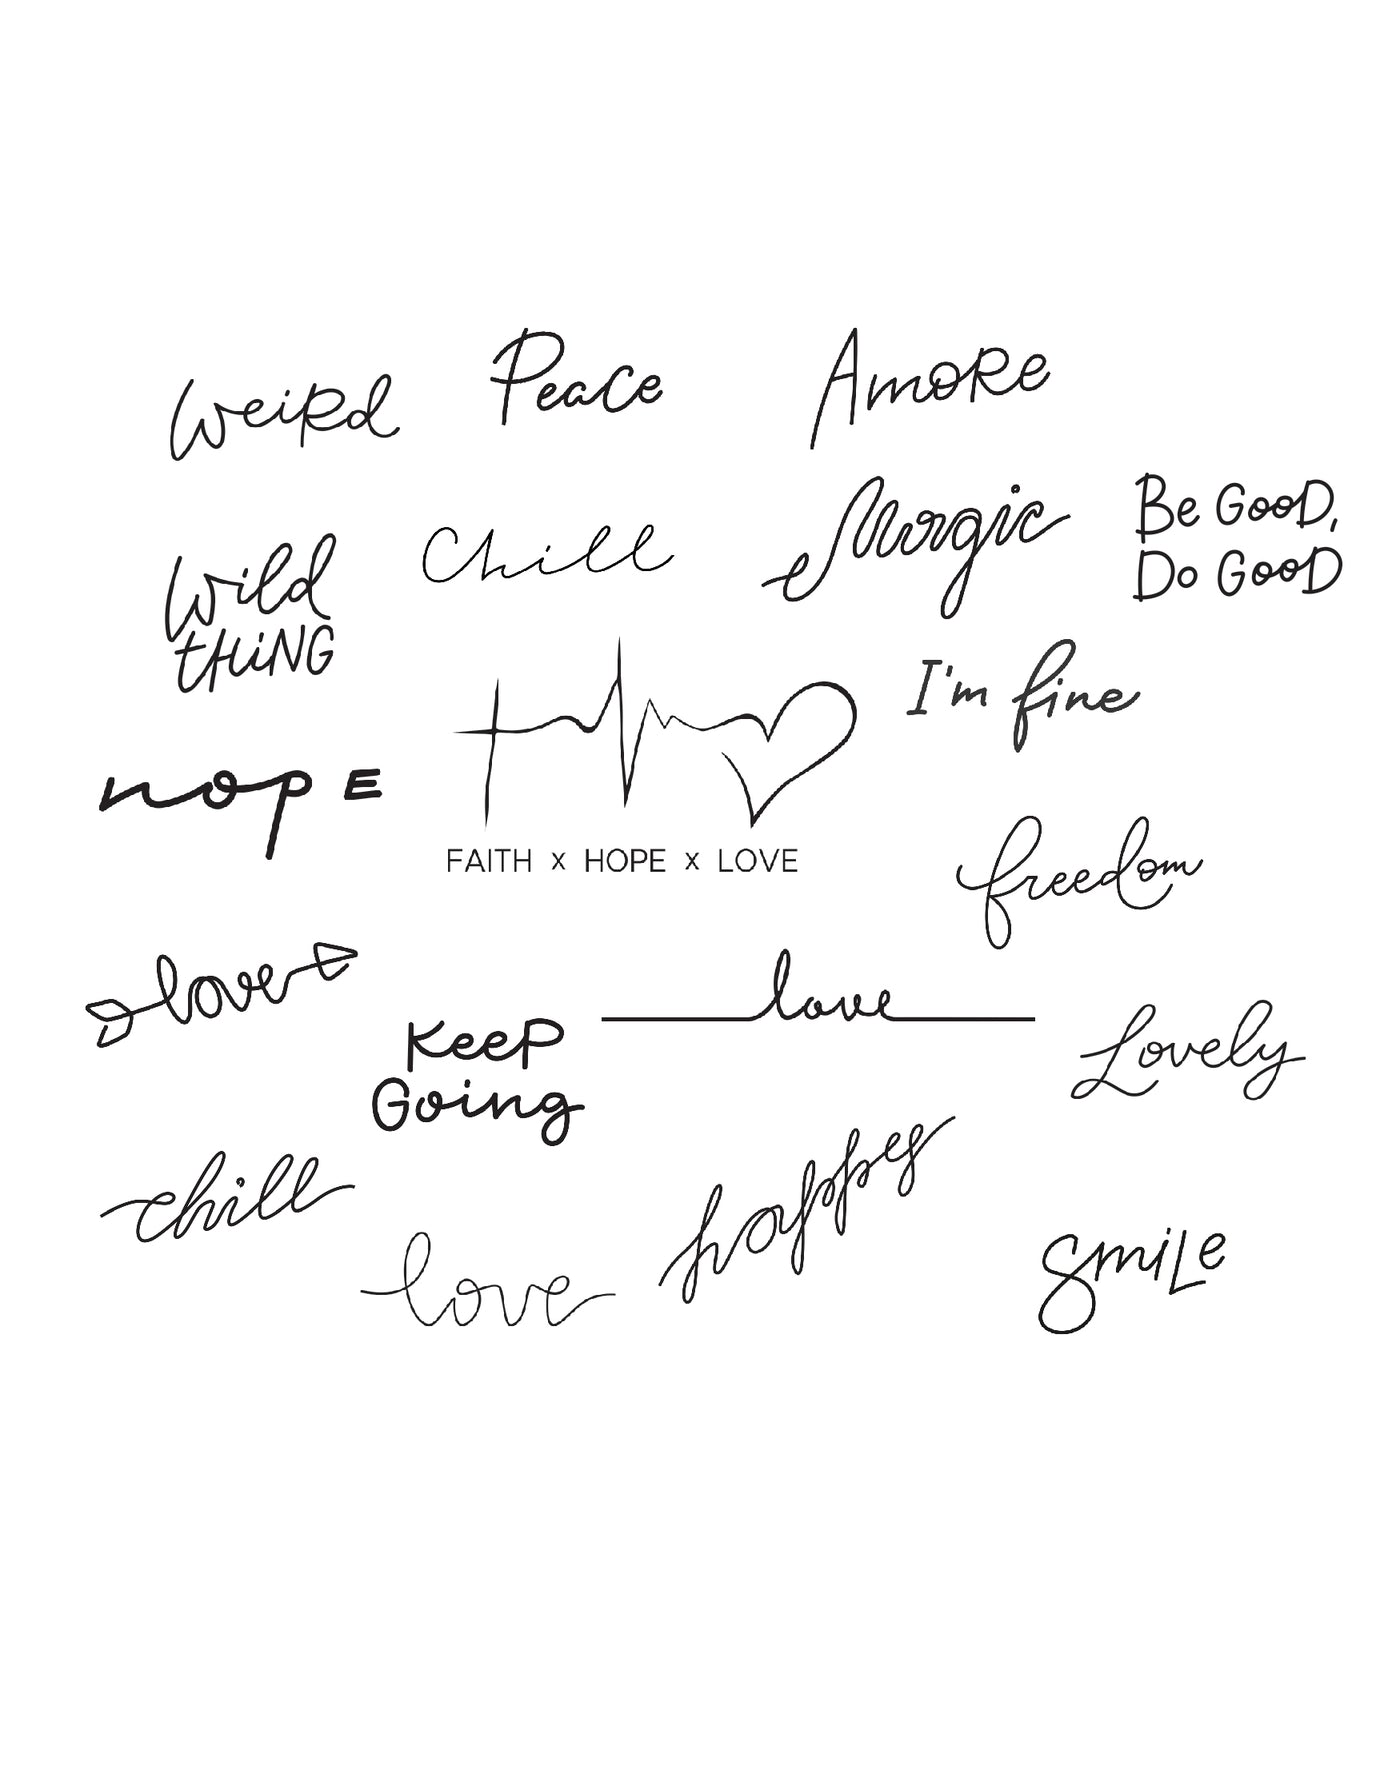 weiRd
Peace
AmoRe
Magic
Be GooD,
Do GooD
Chill
Wild
tHiNG
I'm fine
nopE
FAITH x HOPE x LOVE
freedom
love
love
Lovely
KeeP
Going
chill
happy
love
SmiLe